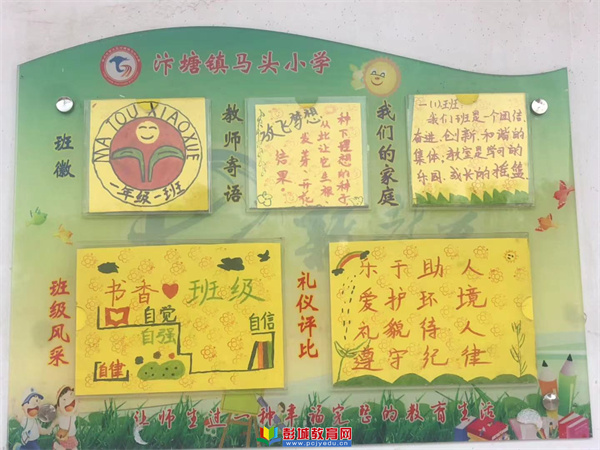 汴塘镇马头小学
班徽
MA TOU XIAOXUE
一年级一班
教师寄语
放飞梦想
种下理想的种子
从此让它生根
发芽、开花
结果。
我们的家庭
一(1)班
我们班是一个团结、
奋进、创新、和谐的
集体,教室是学习的
乐园,成长的摇篮
班级风采
书香 班级
自觉
自强
自信
自律
礼仪评比
乐于助人
爱护环境
礼貌待人
遵守纪律
让师生过一种幸福完整的教育生活
彭城教育网
www.pcjyedu.cn